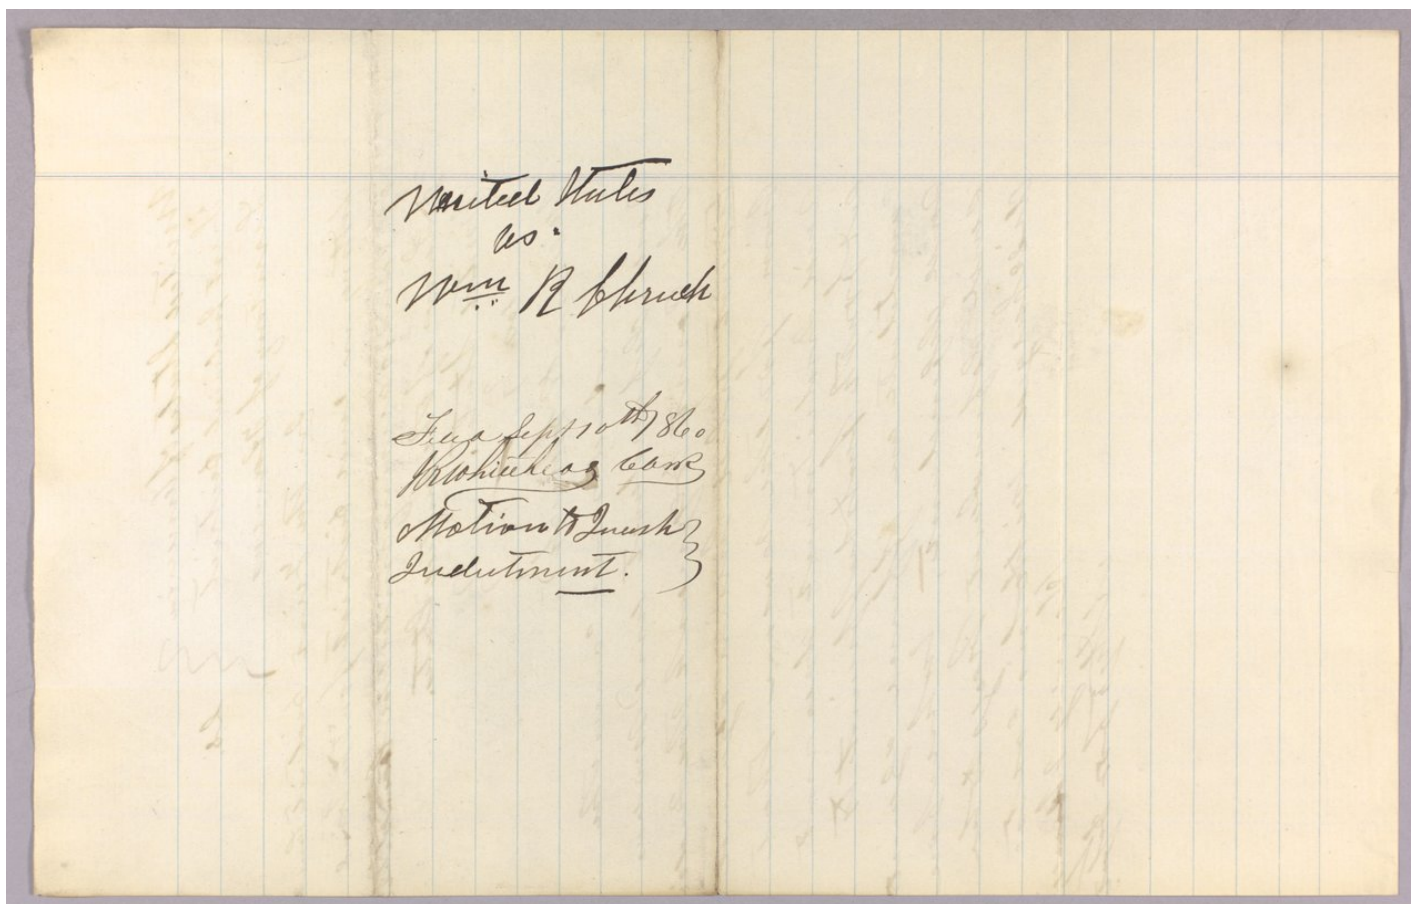 United States
vs.
Wm R Church
Filed Sept 10th 1860
Clerk
Motion to Quash
Indictment.